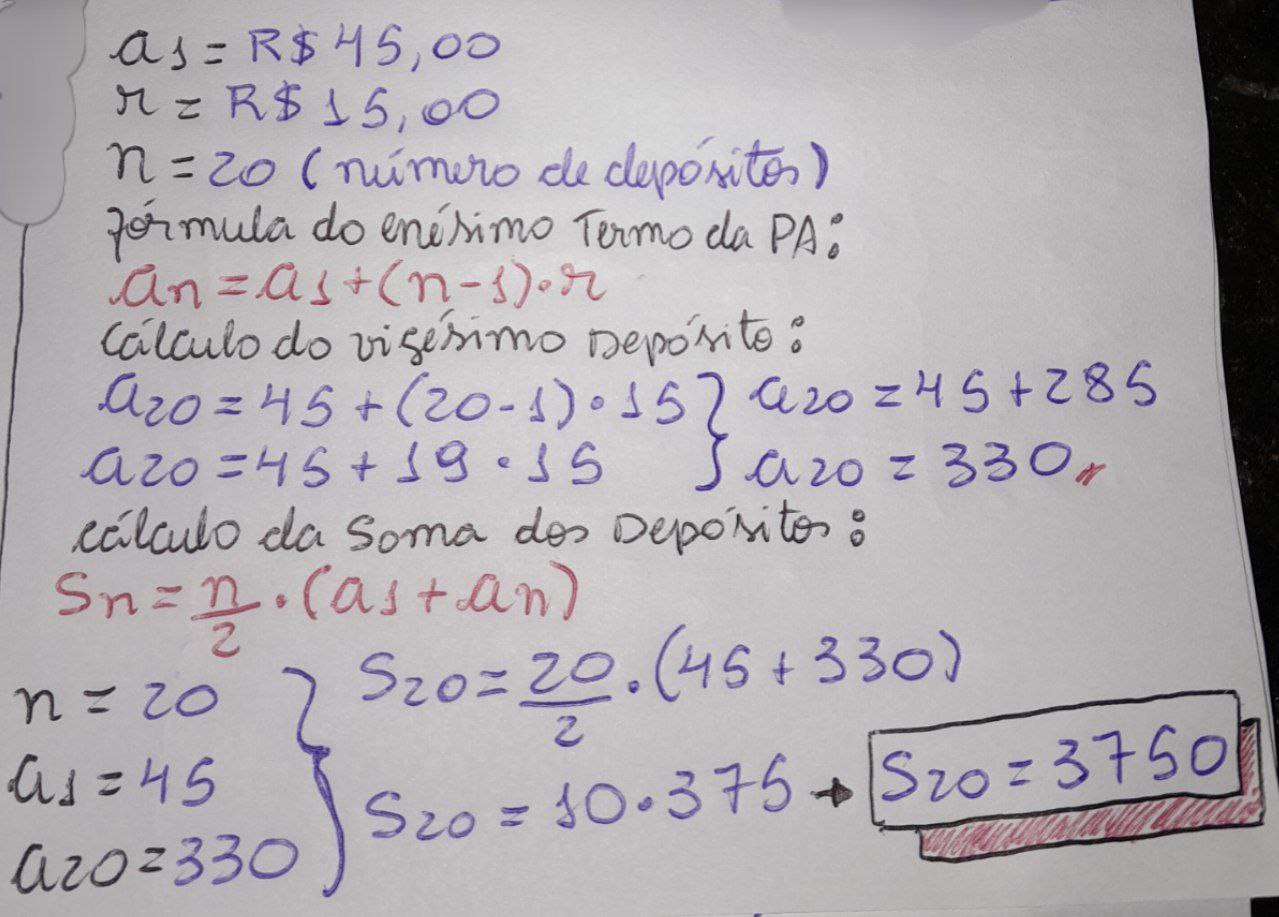 a1 = R$ 45,00
r = R$ 15,00
n = 20 (número de depósitos)
fórmula do enésimo Termo da PA:
an = a1 + (n-1)·r
Cálculo do vigésimo Depósito:
a20 = 45 + (20-1)·15 } a20 = 45 + 285
a20 = 45 + 19·15 } a20 = 330
cálculo da Soma dos Depósitos:
Sn = n/2 · (a1 + an)
n = 20 } S20 = 20/2 · (45 + 330)
a1 = 45
S20 = 10·375 → S20 = 3750
a20 = 330